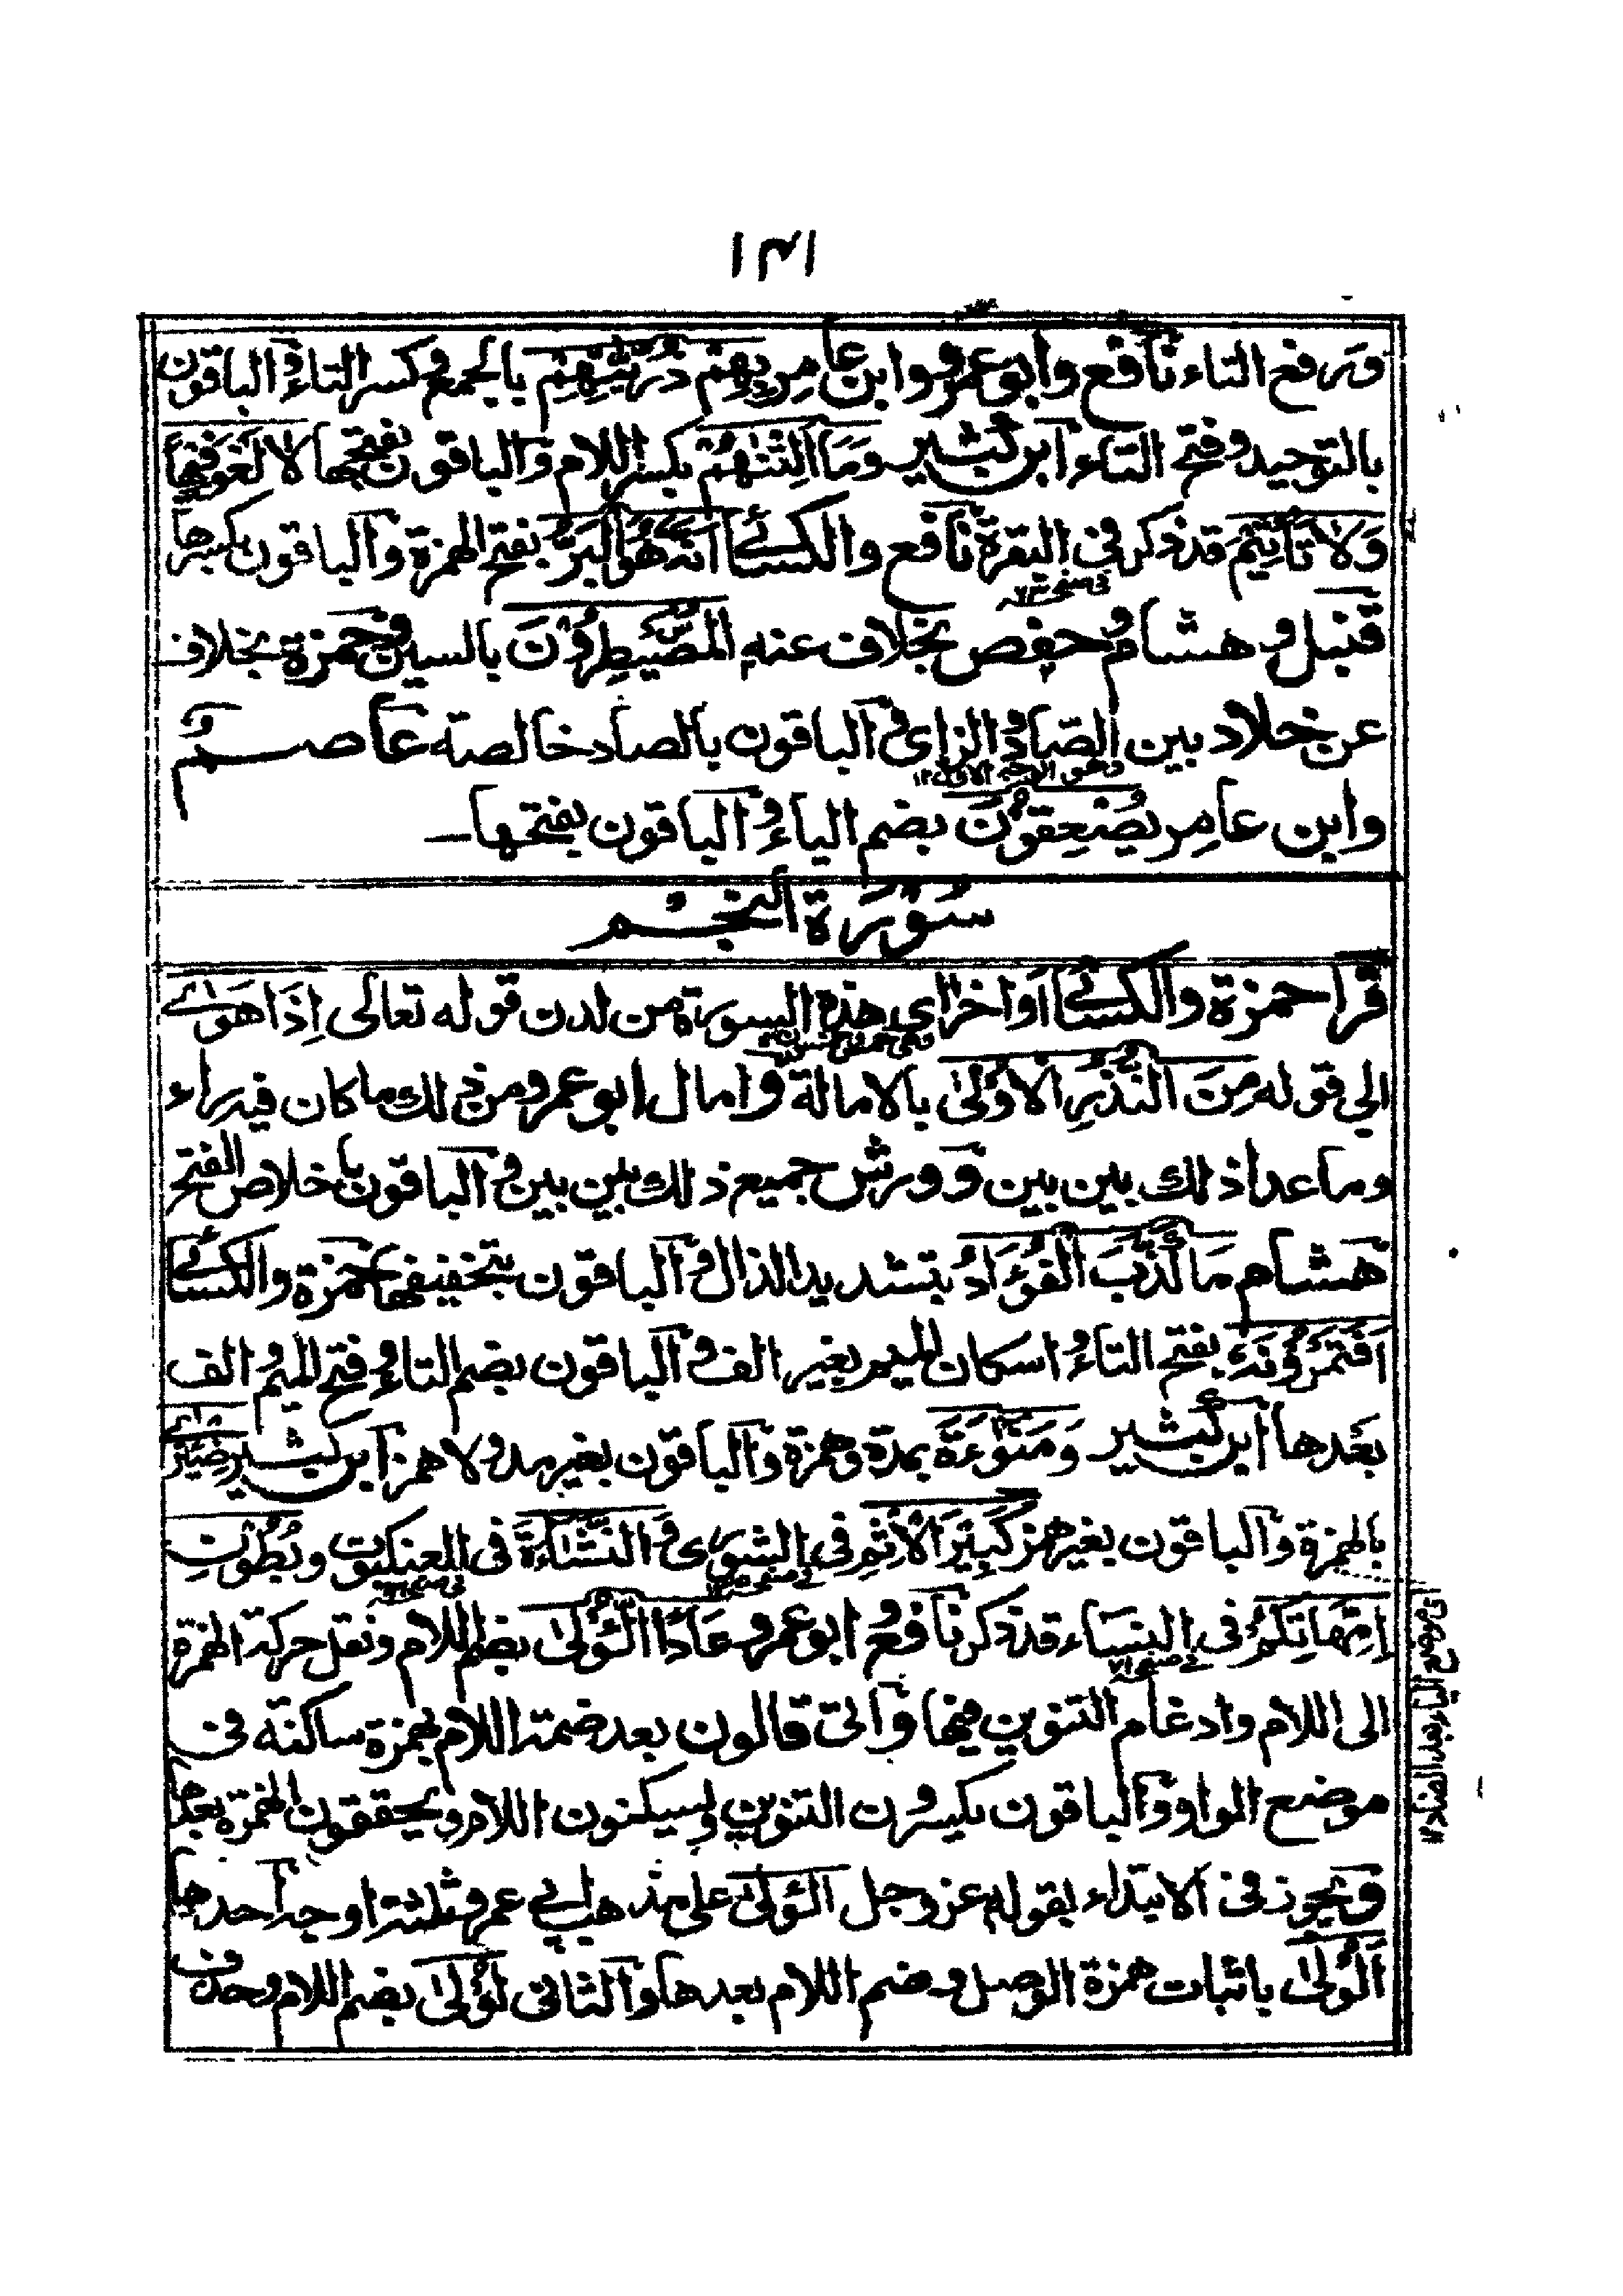 ١٣١
ورفع التاء نافع وابوعمرو وابن عامر بهم ذريتهم بالجمع وكسر التاء والباقون
بالتوحيد وفتح التاء ابن كثير وما التنهم بكسر اللام والباقون بفتحها لا لغو فيها
ولا تأثيم قد ذكر فى البقرة نافع والكسائي انه هو البر بفتح الهمزة والباقون بكسرها
قنبل وهشام وحفص بخلاف عنه المصيطرون بالسين وحمزة بخلاف
عن خلاد بين الصاد والزاى والباقون بالصاد خالصة عاصم
وهو الوجه الاول ١٢
وابن عامر يصعقون بضم الياء والباقون بفتحها
سورة النجم
قرا حمزة والكسائي اواخر اى هذه السورة من لدن قوله تعالى اذا هوى
الى قوله من النذر الاولى بالامالة وامال ابوعمرو من ذلك ما كان فيه راء
وما عدا ذلك بين بين وورش جميع ذلك بين بين والباقون باخلاص الفتح
هشام ما كذب الفؤاد بتشديد الذال والباقون بتخفيفها حمزة والكسائي
افتمرونه بفتح التاء واسكان الميم بغير الف والباقون بضم التاء وفتح الميم والف
بعدها ابن كثير ومنوءة بمدة وهمزة والباقون بغير مد ولا همز ابن كثير ضئزى
بالهمزة والباقون بغير همز كبير الاثم فى الشورى والنشاءة فى العنكبوت وبطون
امهاتكم فى النساء قد ذكر نافع وابوعمرو عادا الولى بضم اللام ونقل حركة الهمزة
الى اللام وادغام التنوين فيها واتى قالون بعد ضمة اللام بهمزة ساكنة فى
موضع الواو والباقون يكسرون التنوين ويسكنون اللام ويحققون الهمزة بعدها
ويجوز فى الابتداء بقوله عزوجل الولى على مذهب ابي عمرو ثلثة اوجه احدها
الولى باثبات همزة الوصل وضم اللام بعدها والثانى لولى بضم اللام وحذف